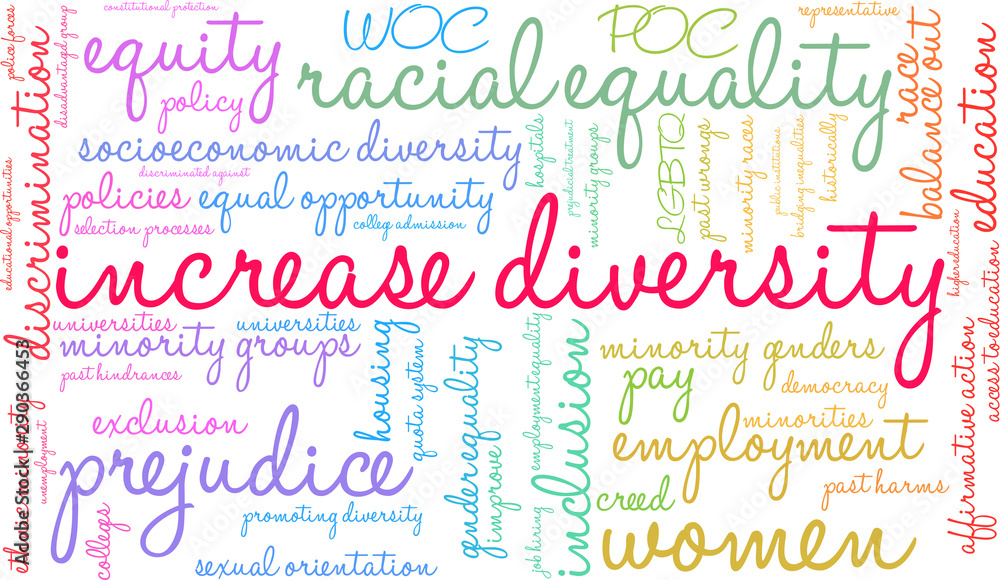 constitutional protection
WOC
POC
representative
police forces
disadvantagd group
discrimination
equity
racial equality
race
balance out
education
policy
socioeconomic diversity
discriminated against
hospitals
prejudicial treatment
minority groups
LGBTQ
past wrongs
minority races
public institutions
bridging inequalities
historically
educational opportunities
policies
equal opportunity
selection processes
colleg admission
increase diversity
higher education
universities
universities
minority groups
past hindrances
housing
quota system
gender equality
improve
employmateequality
inclusion
minority genders
pay
democracy
affirmative action
access to education
exclusion
minorities
employment
prejudice
unemployment
creed
past harms
promoting diversity
job hiring
women
collegs
sexual orientation
Adobe Stock | #290366453
Adobe Stock